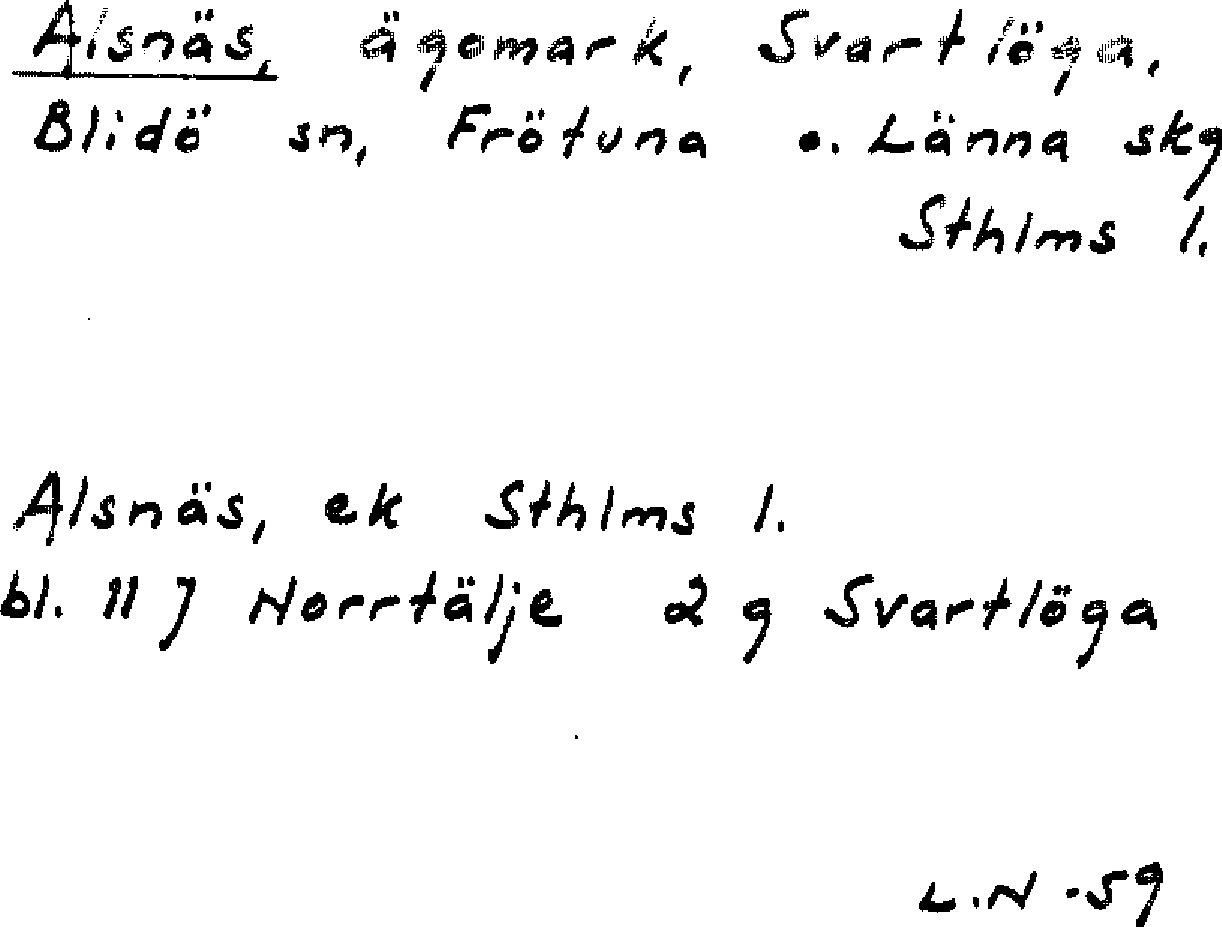 Alsnäs, ägomark, Svartlöga,
Blidö sn, Frötuna o. Länna skg
Sthlms l.
Alsnäs, ek Sthlms l.
bl. 11 J Norrtälje 2 g Svartlöga
L.N -59